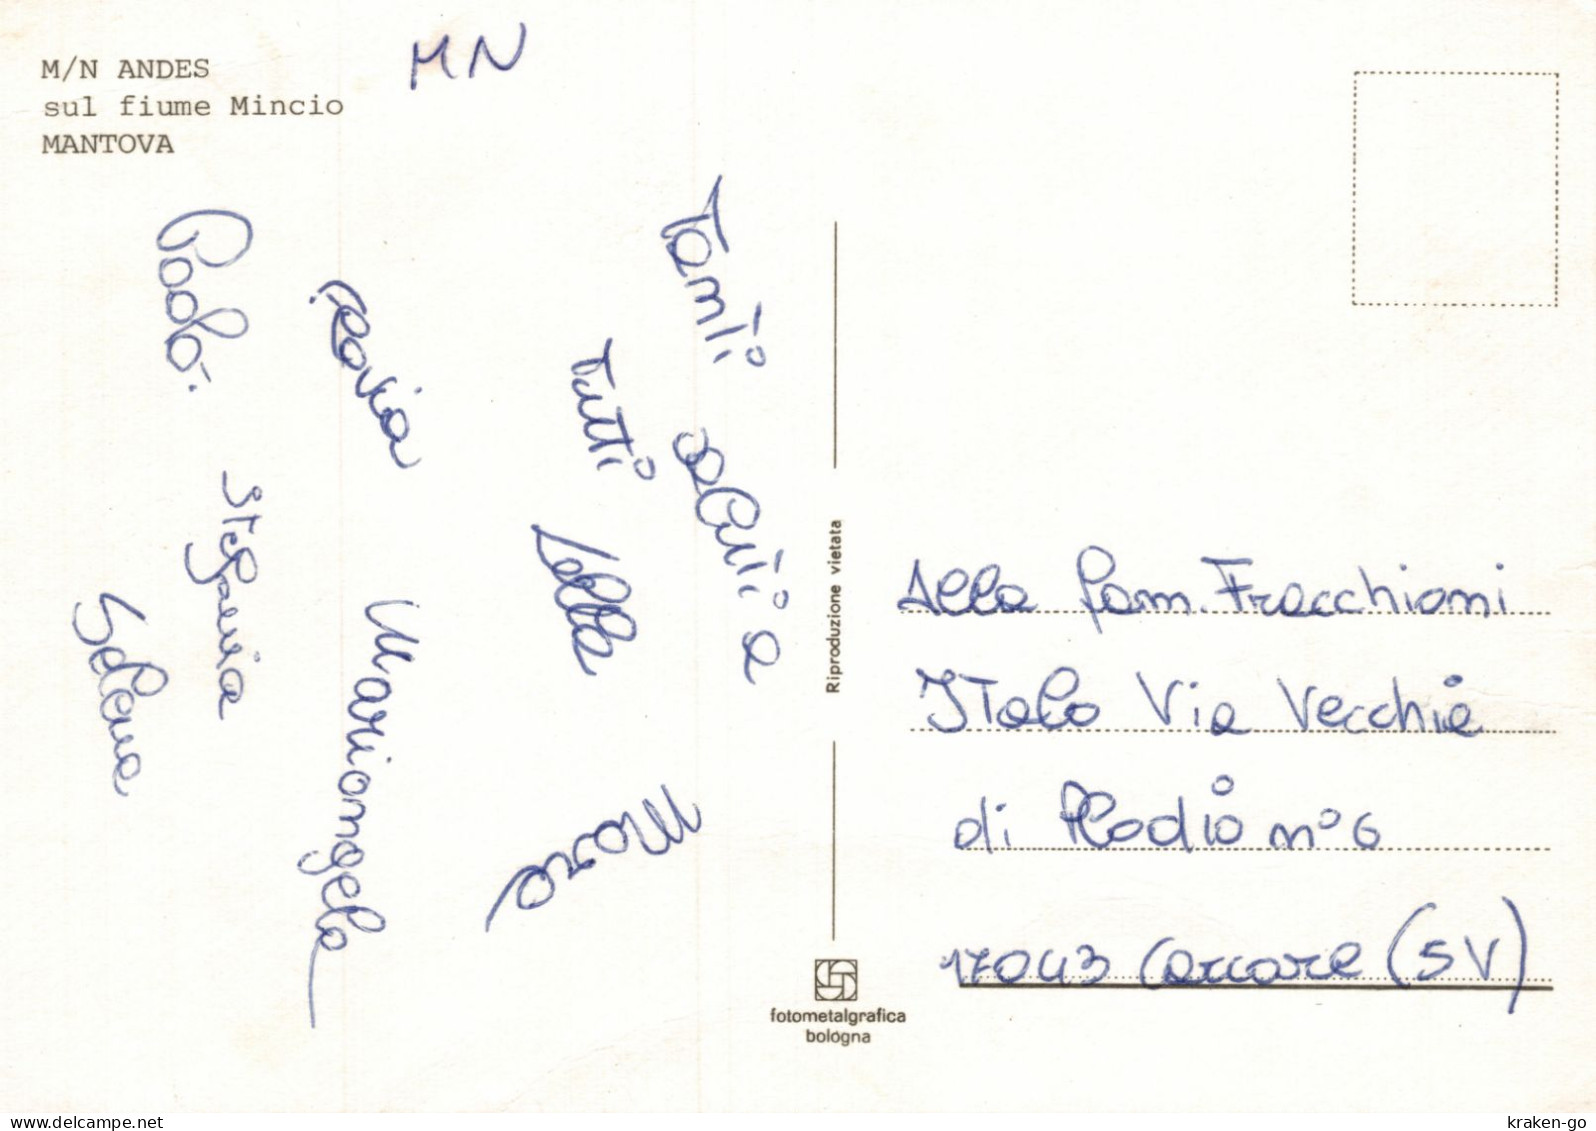 M/N ANDES
sul fiume Mincio
MANTOVA
MN
Tanti saluti a
tutti
Lella
Mara
Flavia
Mariangela
Paolo.
Stefania
Selena
Riproduzione vietata
fotometalgrafica
bologna
Alla fam. Fracchioni
Italo Via Vecchia
di Plodio n° 6
17043 Carcare (SV)
kraken-go